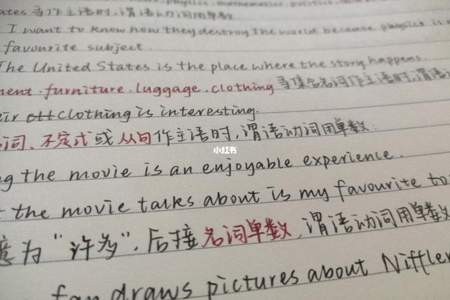 ates 等作主语时,谓语动词用单数
I want to know how they destroy the world because physics is m
favourite subject.
The United States is the place where the story happens.
ment, furniture, luggage, clothing 等集合名词作主语时,谓语
eir clothing is interesting.
名词、不定式或从句作主语时,谓语动词用单数.
小红书
g the movie is an enjoyable experience.
t the movie talks about is my favourite to
意为“许多”,后接名词单数,谓语动词用单数
fan draws pictures about Niffler